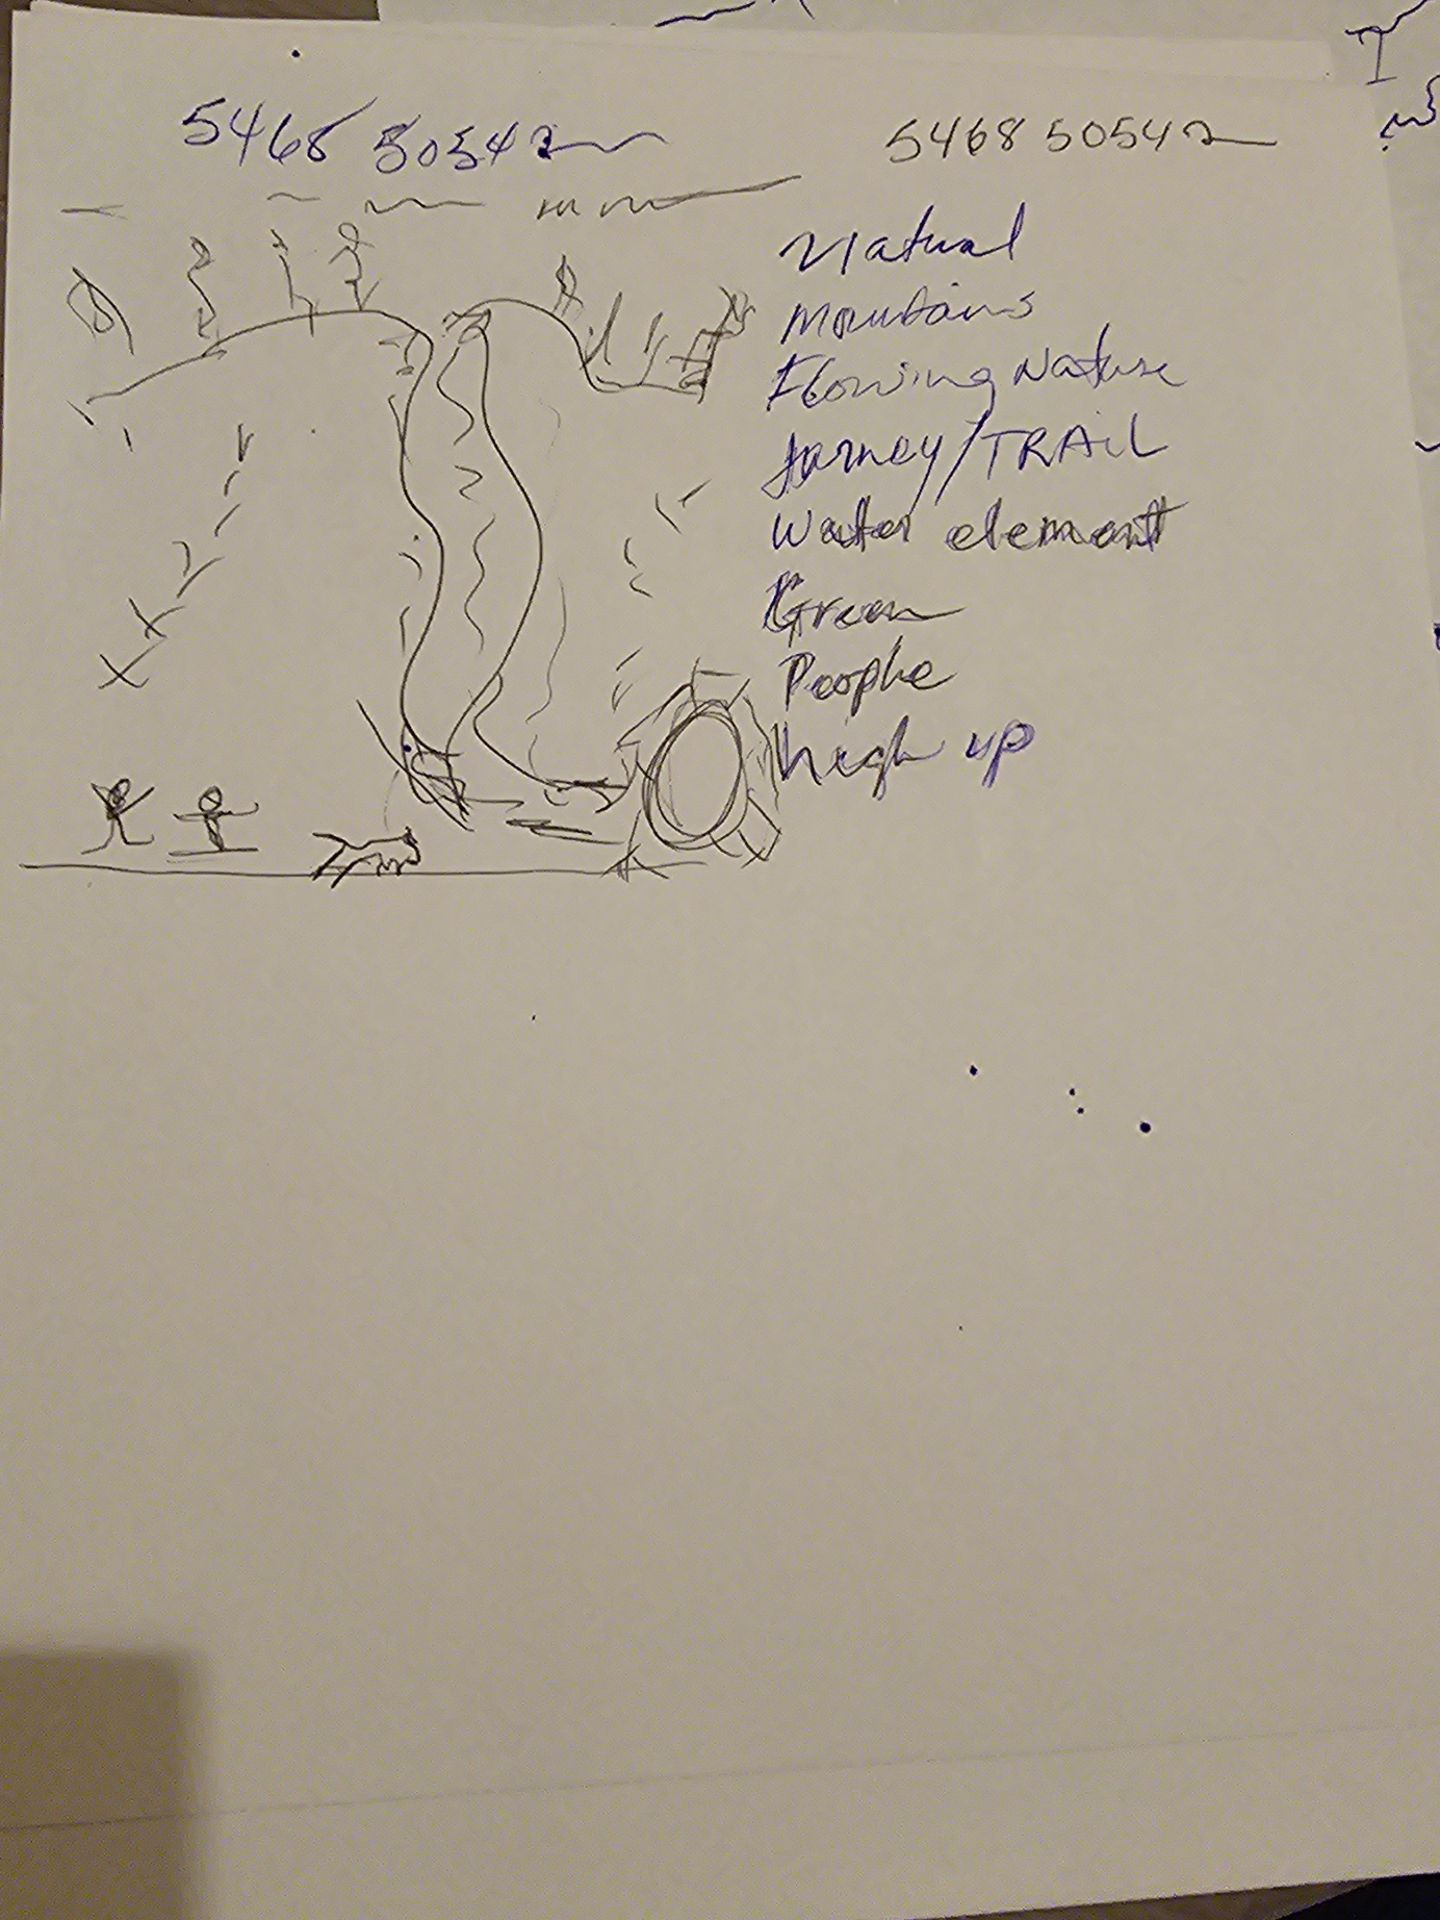 5468 50542
5468 50542
Natural
Mountains
Flowing Nature
Jorney/TRAIL
Water element
Green
People
high up